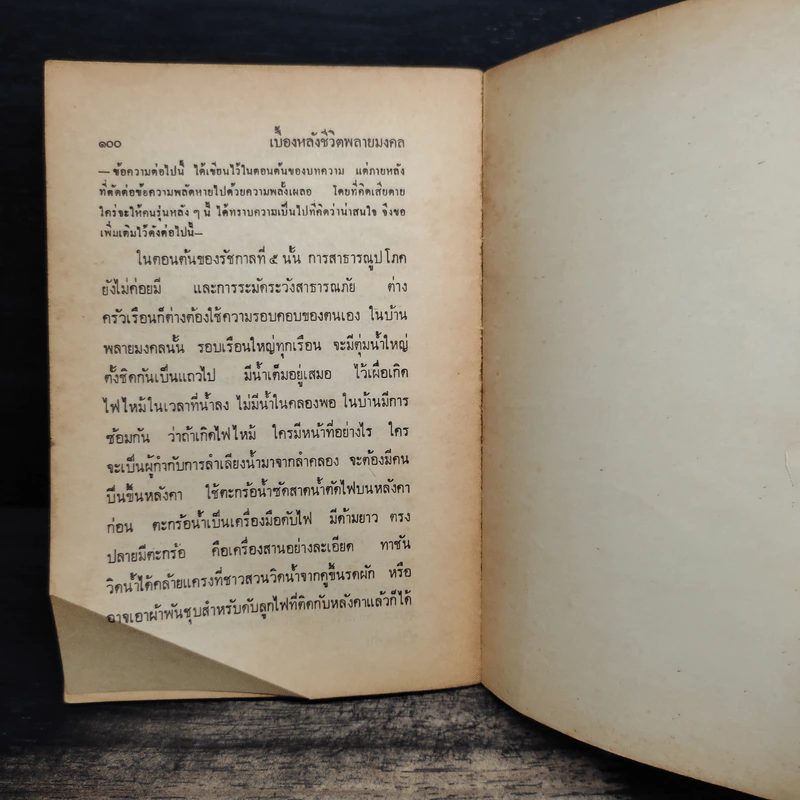 ๑๐๐ เบื้องหลังชีวิตพลายมงคล
—ข้อความต่อไปนี้ ได้เขียนไว้ในตอนต้นของบทความ แต่ภายหลัง
ที่ตัดต่อข้อความพลัดหายไปด้วยความพลั้งเผลอ โดยที่คิดเสียดาย
ใคร่จะให้คนรุ่นหลัง ๆ นี้ ได้ทราบความเป็นไปที่คิดว่าน่าสนใจ จึงขอ
เพิ่มเติมไว้ดังต่อไปนี้—
ในตอนต้นของรัชกาลที่ ๕ นั้น การสาธารณูปโภค
ยังไม่ค่อยมี และการระมัดระวังสาธารณภัย ต่าง
ครัวเรือนก็ต่างต้องใช้ความรอบคอบของตนเอง ในบ้าน
พลายมงคลนั้น รอบเรือนใหญ่ทุกเรือน จะมีตุ่มน้ำใหญ่
ตั้งชิดกันเป็นแถวไป มีน้ำเต็มอยู่เสมอ ไว้เผื่อเกิด
ไฟไหม้ในเวลาที่น้ำลง ไม่มีน้ำในคลองพอ ในบ้านมีการ
ซ้อมกัน ว่าถ้าเกิดไฟไหม้ ใครมีหน้าที่อย่างไร ใคร
จะเป็นผู้กำกับการลำเลียงน้ำมาจากลำคลอง จะต้องมีคน
ปีนขึ้นหลังคา ใช้ตะกร้อน้ำซัดสาดน้ำตัดไฟบนหลังคา
ก่อน ตะกร้อน้ำเป็นเครื่องมือดับไฟ มีด้ามยาว ตรง
ปลายมีตะกร้อ คือเครื่องสานอย่างละเอียด ทาชัน
วิดน้ำได้คล้ายแครงที่ชาวสวนวิดน้ำจากคูขึ้นรดผัก หรือ
อาจเอาผ้าพันชุบสำหรับดับลูกไฟที่ติดกับหลังคาแล้วก็ได้